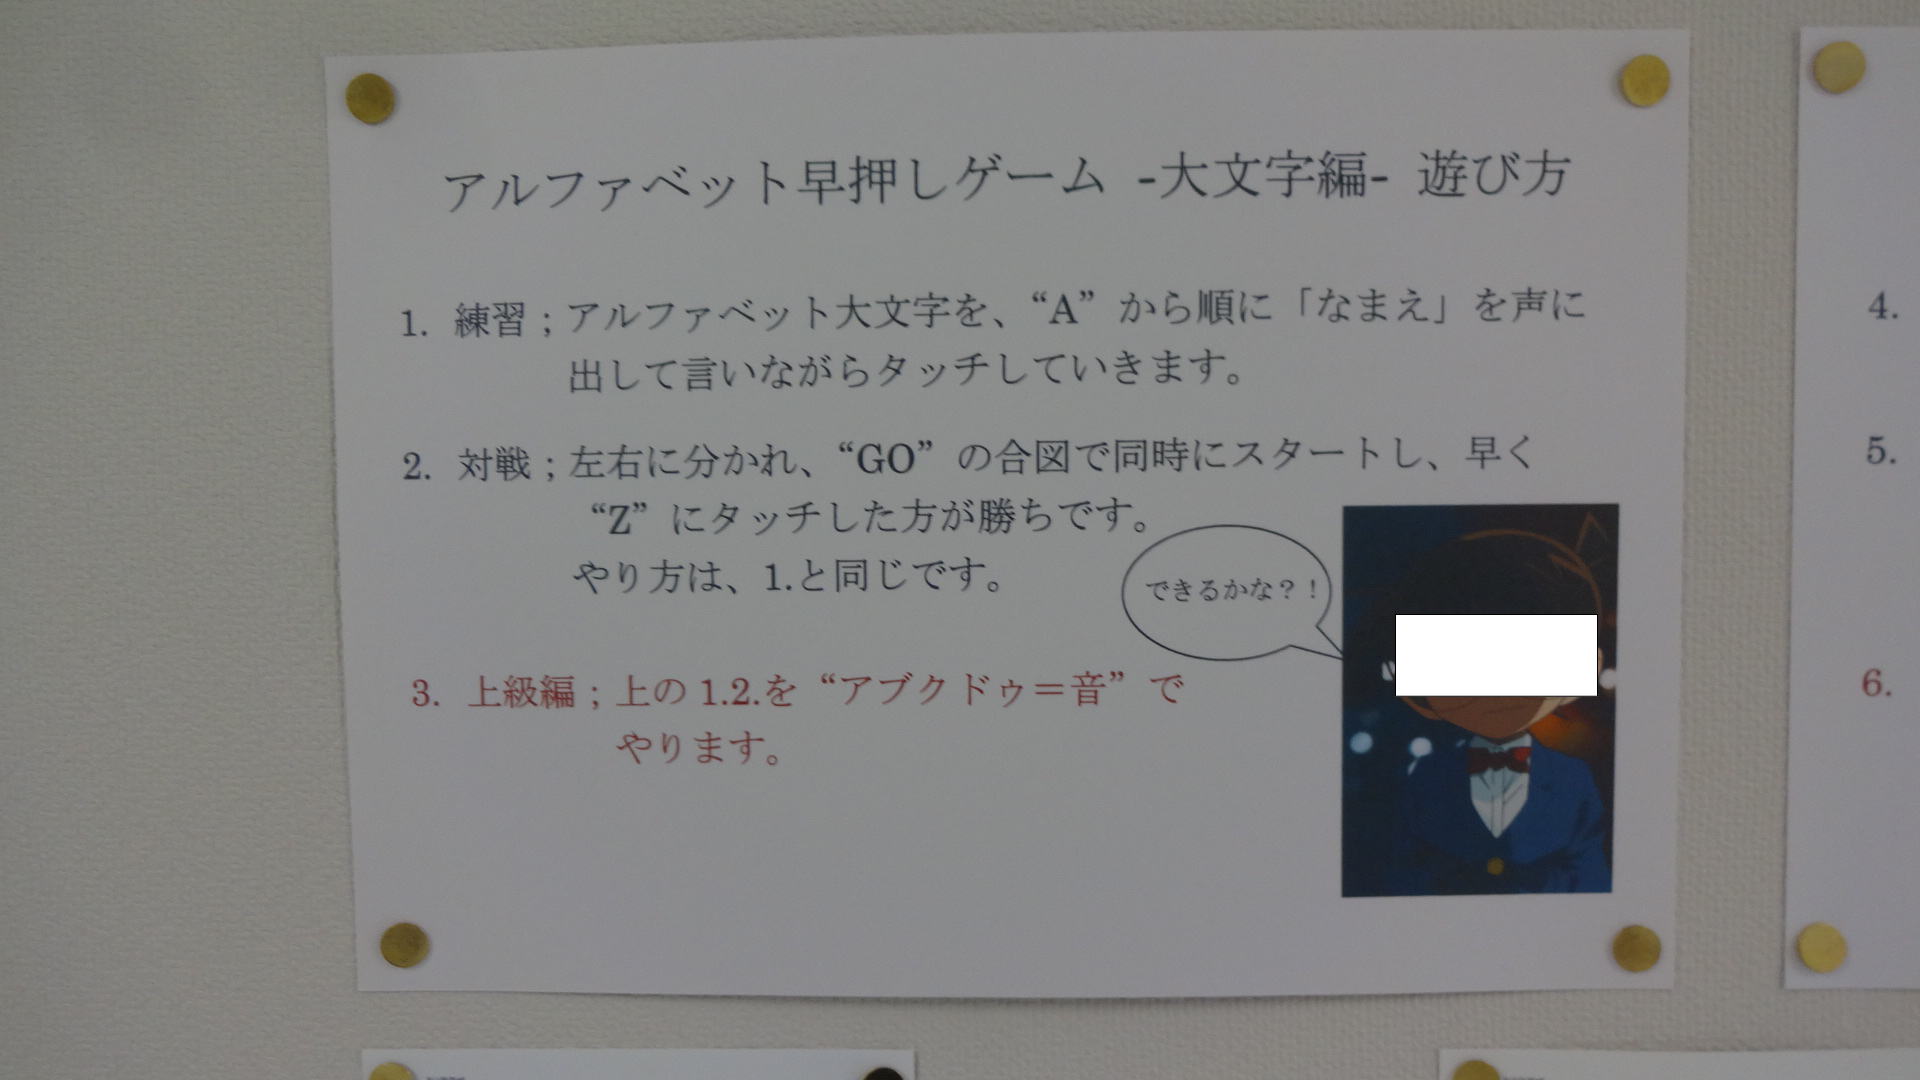 アルファベット早押しゲーム -大文字編- 遊び方
1. 練習；アルファベット大文字を、“A” から順に「なまえ」を声に
出して言いながらタッチしていきます。
2. 対戦；左右に分かれ、“GO” の合図で同時にスタートし、早く
“Z” にタッチした方が勝ちです。
やり方は、1.と同じです。
できるかな？！
3. 上級編；上の 1.2.を “アブクドゥ＝音” で
やります。
4.
5.
6.